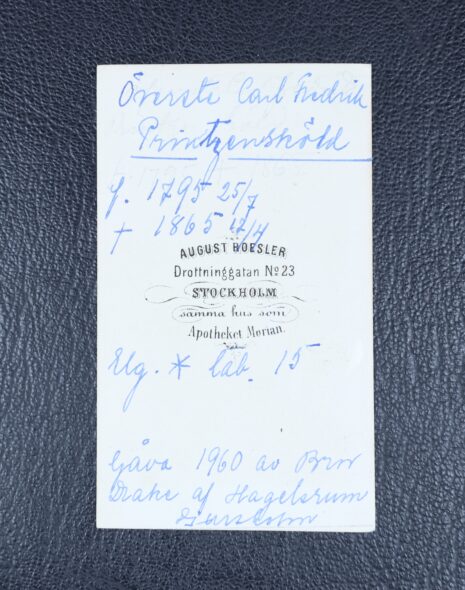 Överste Carl Fredrik
Printzensköld
f. 1795 25/7
† 1865 12/4
AUGUST ROESLER
Drottninggatan No 23
STOCKHOLM
samma hus som
Apotheket Morian.
Elg. * låb. 15
Gåva 1960 av Brw
Drake af Hagelsrum